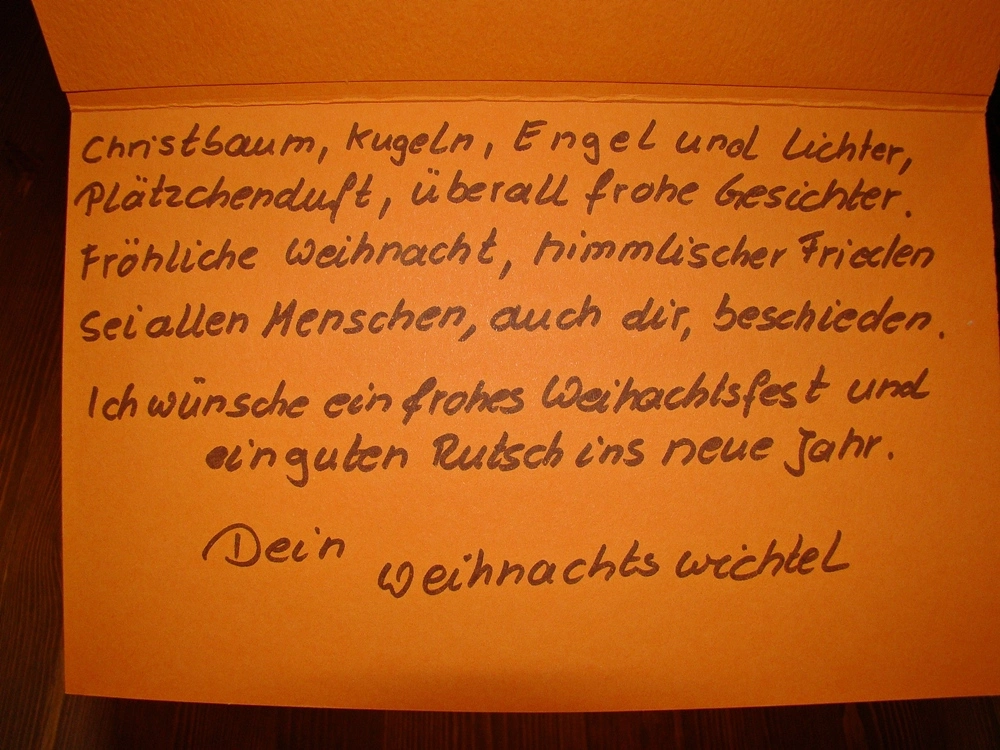 Christbaum, Kugeln, Engel und Lichter,
Plätzchenduft, überall frohe Gesichter.
Fröhliche Weihnacht, himmlischer Frieden
Sei allen Menschen, auch dir, beschieden.
Ich wünsche ein frohes Weihachtsfest und
ein guten Rutsch ins neue Jahr.
Dein
Weihnachtswichtel